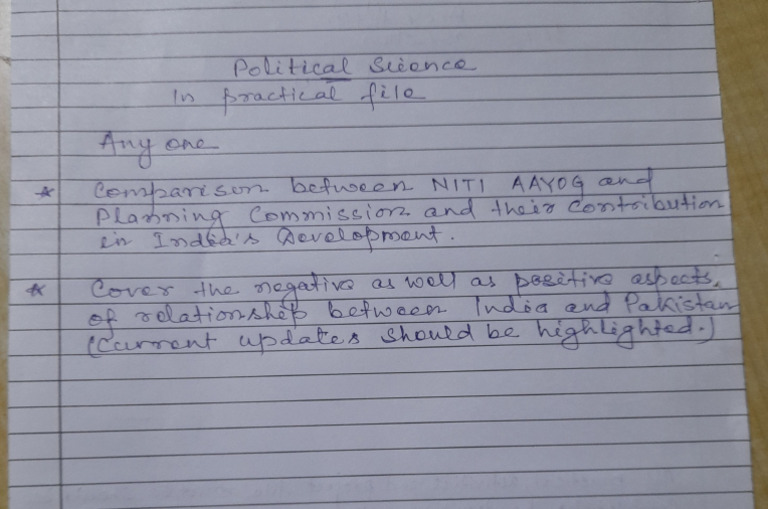 Political Science
In practical file
Any one
* Comparison between NITI AAYOG and
Planning Commission and their contribution
in India's Development.
* Cover the negative as well as positive aspects.
of relationship between India and Pakistan
(Current updates should be highlighted.)